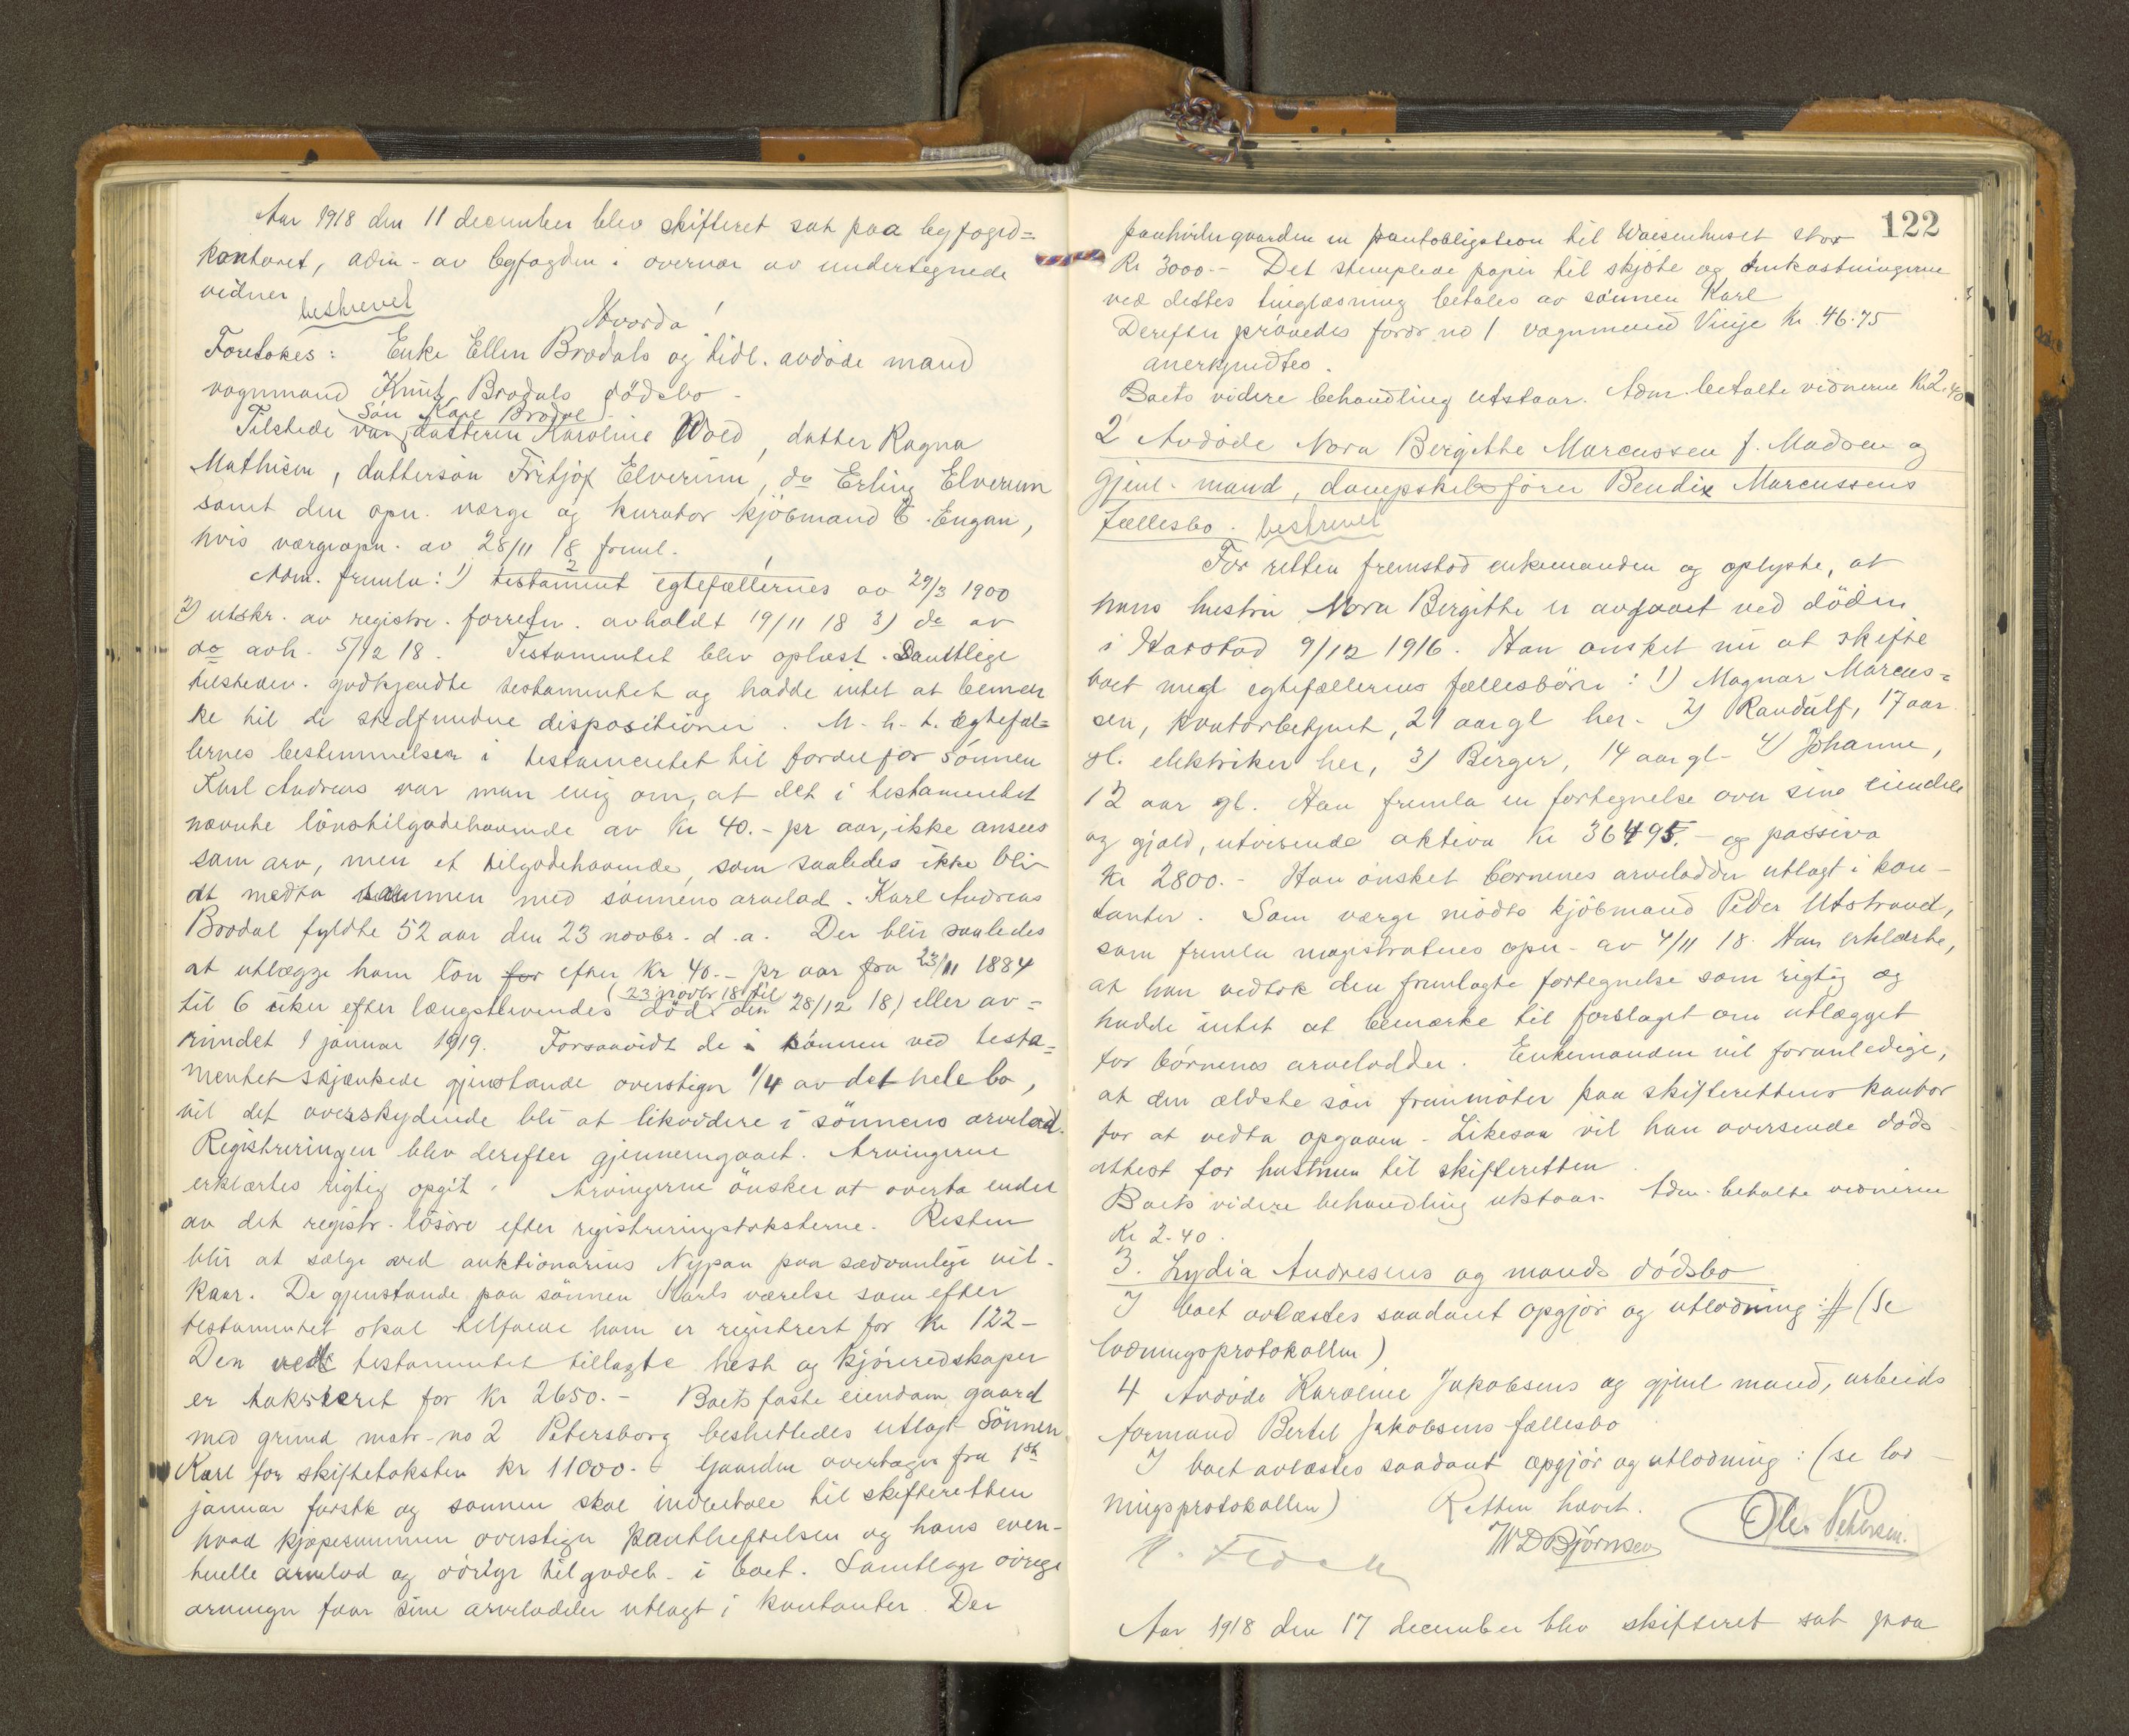 Aar 1918 den 11 december blev skifteret sat paa byfogd=
kontoret, adm. av byfogden i overvær av undertegnede
vidner
beskrevet
Hvorda!
Foretokes: Enke Ellen Brodals og tidl. avdöde mand
vognmand Knut Brodals dödsbo -
Sön Karl Brodal
Tilstede var datteren Karoline Wold, datter Ragna
Mathisen, dattersön Fritjof Elverum, do Erling Elverum
samt den opn. værge og kurator kjöbmand E. Engan,
hvis værgeopn. av 28/11 18 freml.
Adm. fremla: 1) testament egtefællernes av 29/3 1900
2) utskr. av registr. forretn. avholdt 19/11 18 3) do av
do avh. 5/12 18. Testamentet blev oplæst. Samtlige
tilstedev. godkjendte testamentet og hadde intet at bemer
ke til de stedfundne dispositioner. M. h. t. egtefæl=
lernes bestemmelser i testamentet til fordel for sönnen
Karl Andreas var man enig om, at det i testamentet
nævnte lönstilgodehavende av Kr 40.- pr aar, ikke ansees
som arv, men et tilgodehavende, som saaledes ikke blir
at medta sammen med sönnens arvelod. Karl Andreas
Brodal fyldte 52 aar den 23 novbr. d.a. Der blir saaledes
at utlægge ham lön for efter kr 40.- pr aar fra 23/11 1884
(23 novbr 18 til
til 6 uker efter længstlevendes död den 28/12 18) eller av=
rundet 1 januar 1919. Forsaavidt de sönnen ved testa=
mentet skjænkede gjenstande overstiger 1/4 av det hele bo,
vil det overskydende bli at likvidere i sönnens arvelod.
Registreringen blev derefter gjennemgaaet. Arvingerne
erklærtes rigtig opgit. Arvingerne önsker at overta endel
av det registr. lösöre efter registreringstaksterne. Resten
blir at sælge ved auktionarius Nypan paa sædvanlige vil-
kaar. De gjenstande paa sönnen Karls værelse som efter
testamentet skal tilfalde ham er registrert for kr 122-
Den ved testamentet tillagte hest og kjöreredskaper
er taksteret for kr 2650.- Boets faste eiendom gaard
med grund matr-no 2 Petersborg besluttedes utlagt sönnen
Karl for skiftetaksten kr 11000.- Gaarden overtages fra 1st
januar förstk og sönnen skal indbetale til skifteretten
hvad kjöpesummen overstiger pantheftelsen og hans even-
tuelle arvelod og övrige tilgodeh. i boet. Samtlige övrige
arvinger faar sine arvelodder utlagt i kontanter. Der
122
paahviler gaarden en pantobligation til Waisenhuset stor
Kr 3000.- Det stemplede papir til skjöte og omkostningerne
ved dettes tinglæsning betales av sönnen Karl
Derefter prövedes fordr no 1 vognmand Vinje kr 46.75
anerkjendtes.
Boets videre behandling utstaar. Adm. betalte vidnerne Kr 2.40
2 Avdöde Nora Bergitte Marcussen f. Madsen og
gjenl. mand, dampskibsförer Bendix Marcussens
fællesbo. beskrevet
For retten fremstod enkemanden og oplyste, at
hans hustru Nora Bergitte er avgaaet ved döden
i Harstad 9/12 1916. Han önsket nu at skifte
boet med egtefællernes fællesbörn: 1) Magnar Marcus=
sen, kontorbetjent, 21 aar gl her. 2) Randulf, 17 aar
gl. elektriker her, 3) Birger, 14 aar gl- 4) Johanne,
12 aar gl. Han fremla en fortegnelse over sine eiendele
og gjæld, utvisende aktiva kr 36495.- og passiva
Kr 2800.- Han önsket börnenes arvelodder utlagt i kon-
tanter. Som værge mödte kjöbmand Peder Utstrand,
som fremla magistratens opn. av 4/11 18. Han erklærte,
at han vedtok den fremlagte fortegnelse som rigtig og
hadde intet at bemærke til forslaget om utlægget
for börnenes arvelodder. Enkemanden vil foranledige,
at den ældste sön fremmöter paa skifterettens kontor
for at vedta opgaven. Likesaa vil han oversende döds-
attest for hustruen til skifteretten.
Boets videre behandling utstaar. Adm. betalte vidnerne
Kr 2.40.
3. Lydia Andresens og mands dödsbo
I boet avlæstes saadant opgjör og utlodning: (se
lodningsprotokollen)
4 Avdöde Karoline Jakobsens og gjenl mand, arbeids
formand Bertel Jakobsens fællesbo
I boet avlæstes saadant opgjör og utlodning: (se lod-
ningsprotokollen) Retten hævet.
W D Björnsen Ole Petersen.
Aar 1918 den 17 december blev skifteret sat paa